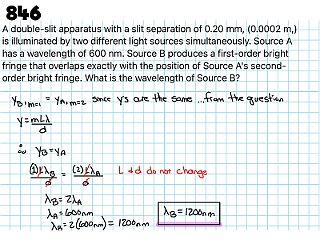 846
A double-slit apparatus with a slit separation of 0.20 mm, (0.0002 m,)
is illuminated by two different light sources simultaneously. Source A
has a wavelength of 600 nm. Source B produces a first-order bright
fringe that overlaps exactly with the position of Source A's second-
order bright fringe. What is the wavelength of Source B?
yB,m=1 = yA,m=2 since y's are the same ...from the question
y = mLλ/d
∴ yB = yA
(1)LλB/d = (2)LλA/d L & d do not change
λB = 2λA
λA = 600nm
λB = 2(600nm) = 1200nm
λB = 1200nm